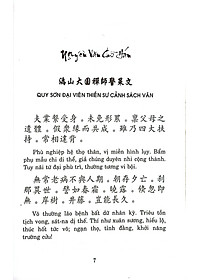 Nguyên Văn Chữ Hán
溈山大圓禪師警策文
QUY SƠN ĐẠI VIÊN THIỀN SƯ CẢNH SÁCH VĂN
夫業繫受身。未免形累。稟父母之
遺體。假眾緣而共成。雖乃四大扶
持。常相違背。
Phù nghiệp hệ thọ thân, vị miễn hình lụy. Bẩm
phụ mẫu chi di thể, giả chúng duyên nhi cộng thành.
Tuy nãi tứ đại phù trì, thường tương vi bội.
無常老病不與人期。朝存夕亡。剎
那異世。譬如春霜。曉露。倏忽即
無。岸樹。井藤。豈能長久。
Vô thường lão bệnh bất dữ nhân kỳ. Triêu tồn
tịch vong, sát-na dị thế. Thí như xuân sương, hiểu lộ,
thúc hốt tức vô; ngạn thọ, tỉnh đằng, khởi năng
trường cửu!
7